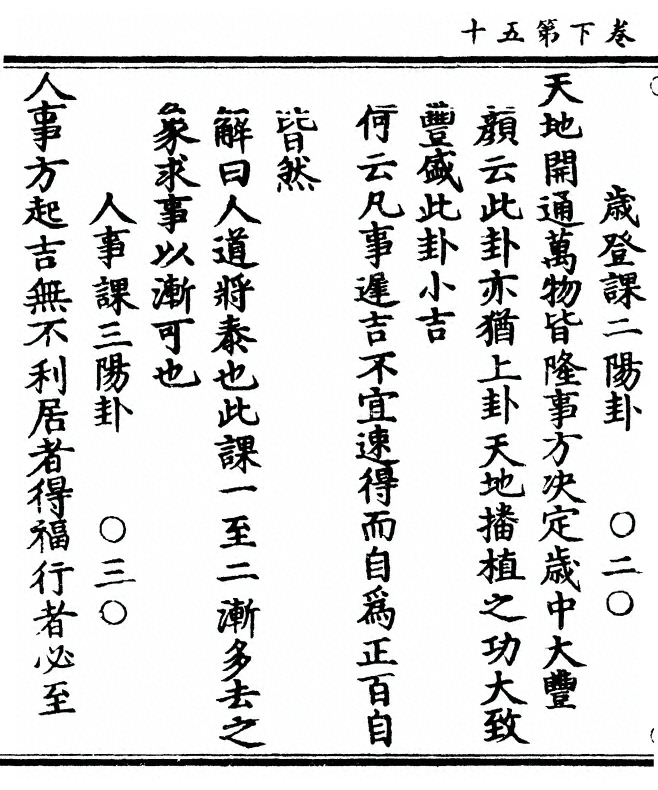 卷下第五十
歲登課二陽卦　〇二〇
天地開通萬物皆隆事方决定歲中大豐
顏云此卦亦猶上卦天地播植之功大致
豐盛此卦小吉
何云凡事遲吉不宜速得而自爲正百自
皆然
解曰人道將泰也此課一至二漸多去之
象求事以漸可也
人事課三陽卦　〇三〇
人事方起吉無不利居者得福行者必至